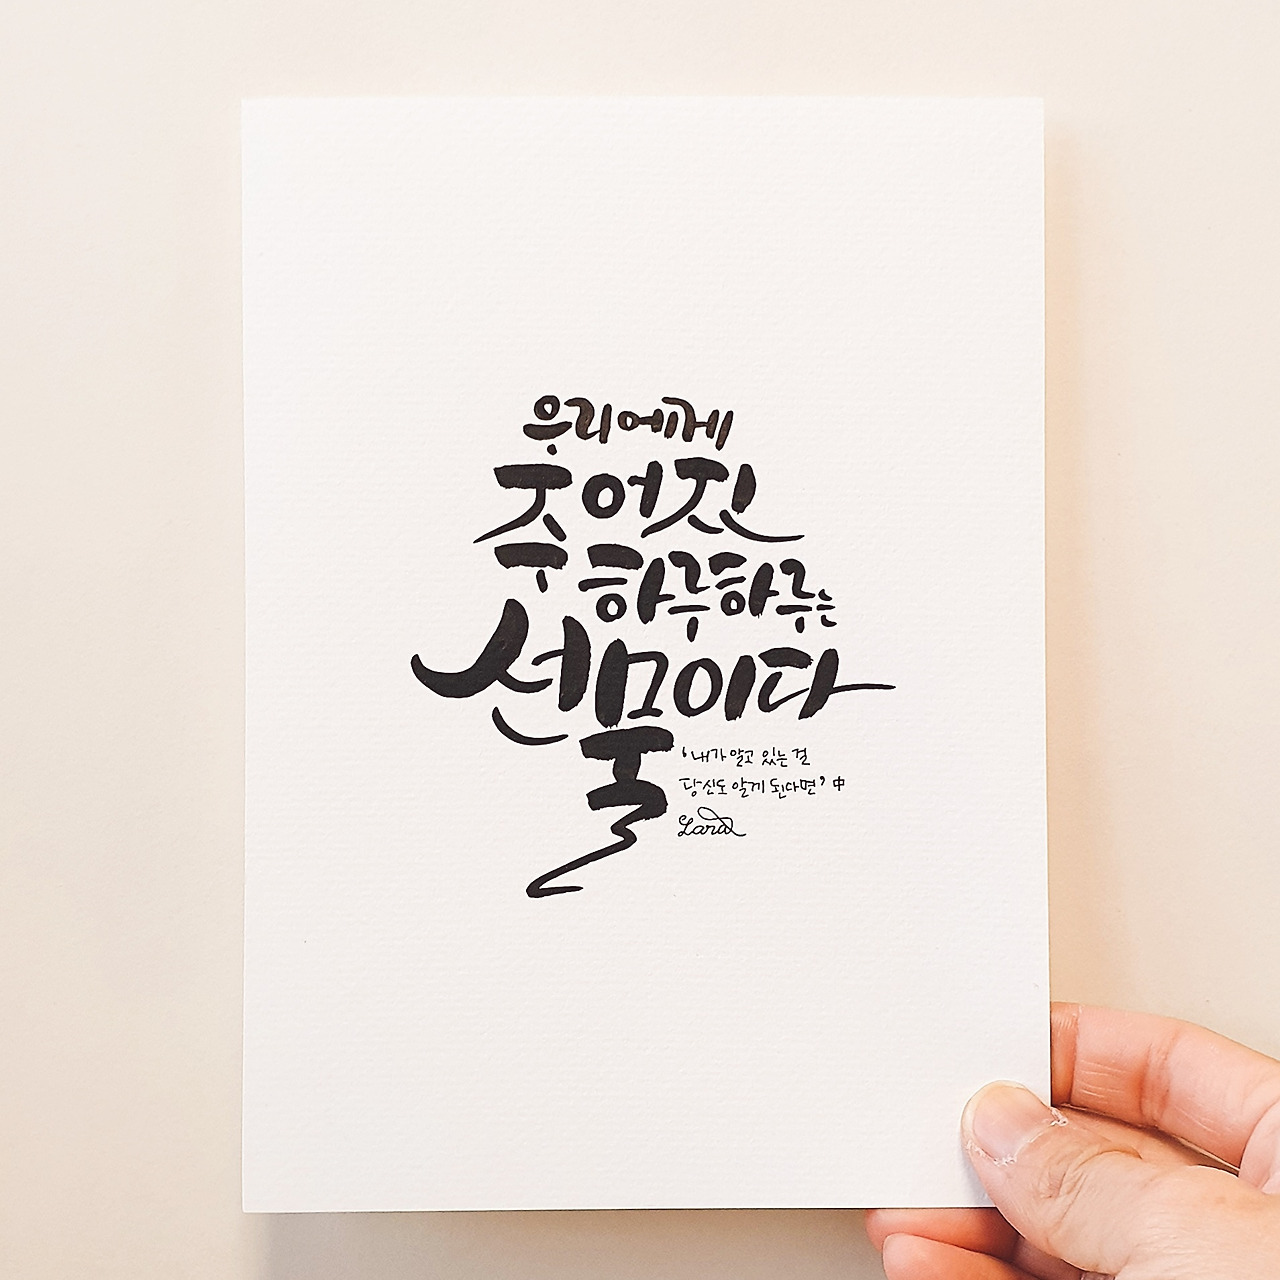 우리에게
주어진
하루하루는
선물이다
'내가 알고 있는 걸
당신도 알게 된다면' 中
Lara